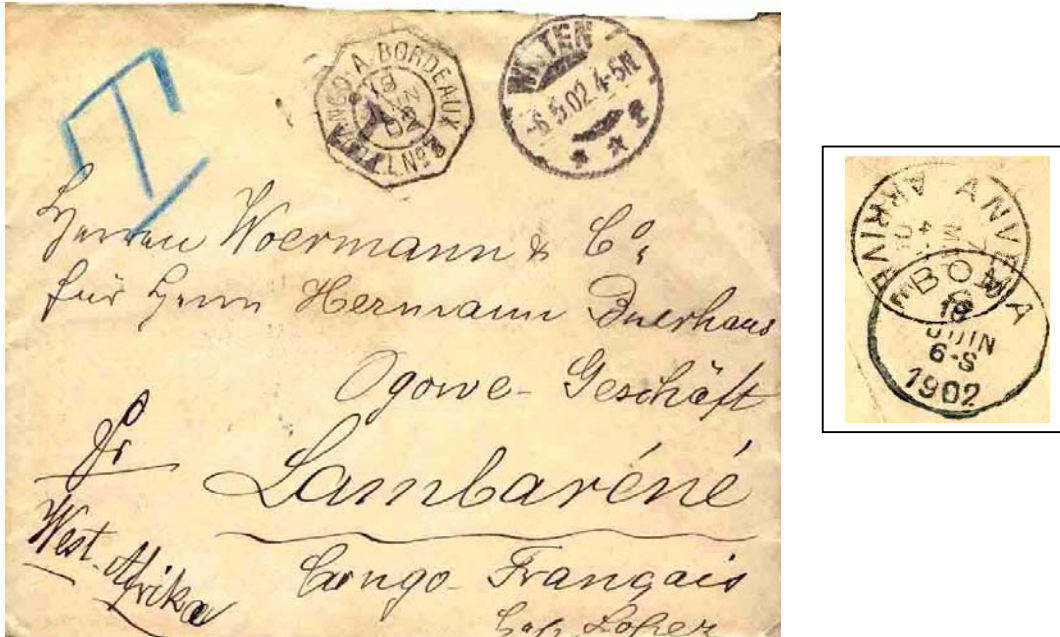 T
LOANGO A BORDEAUX
18
JUIN
02
WITTEN
-6.5.02.4-5N.
* * 2
Herren Woermann & Co.
für Herrn Hermann Duerhaus
Ogowe-Geschäft
Lambaréné
West-Afrika
Congo-Français
Cap Lopez
ANVERS
ARRIVÉE
BOMA
18
JUIN
6-S
1902